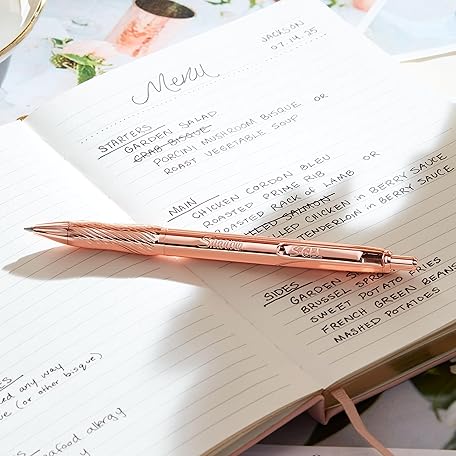 JACKSON
07.14.25
Menu
STARTERS
GARDEN SALAD
CRAB BISQUE
PORCINI MUSHROOM BISQUE OR
ROAST VEGETABLE SOUP
MAIN
CHICKEN CORDON BLEU
ROASTED PRIME RIB OR
ROASTED RACK OF LAMB
LLED SALMON
LLED CHICKEN in BERRY SAUCE
TENDERLOIN in BERRY SAUCE
SIDES
GARDEN
BRUSSEL SPRO
SWEET POTATO FRIES
FRENCH GREEN BEANS
MASHED POTATOES
S.GEL
ed any way
e (or other bisque)
eafood allergy